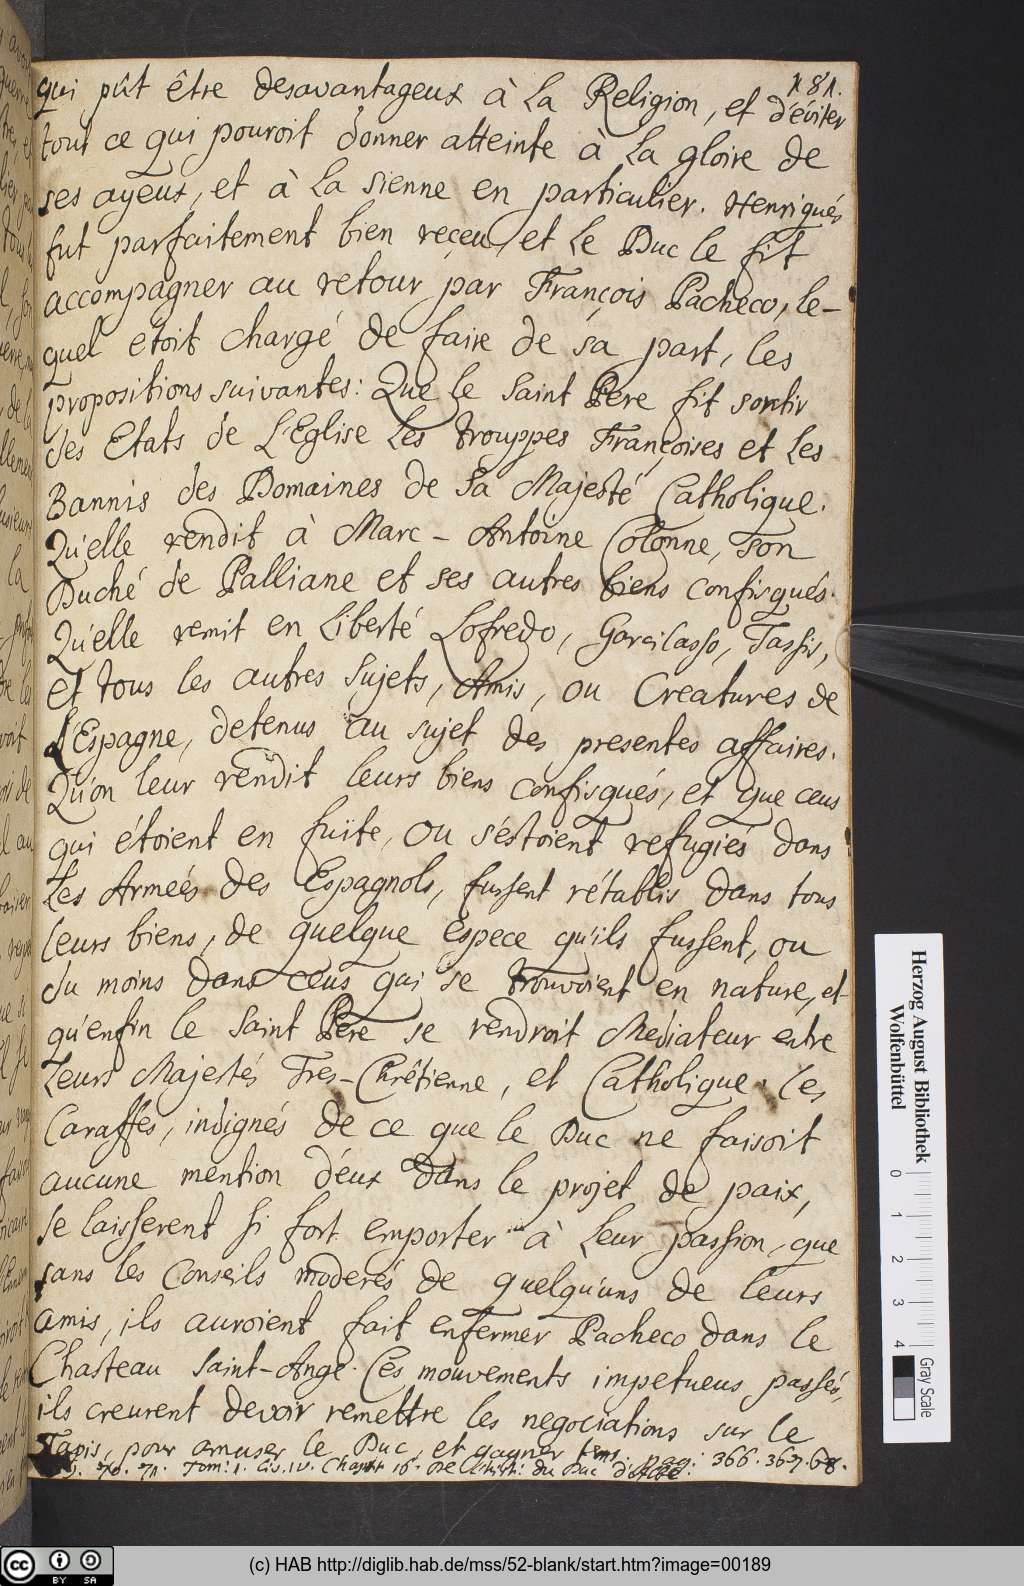 181.
qui pût être desavantageux à la Religion, et d'éviter
tout ce qui pouroit donner atteinte à la gloire de
ses ayeux, et à la sienne en particulier. Henriqués
fut parfaitement bien reçeu, et le Duc le fit
accompagner au retour par François Pacheco, le-
quel etoit chargé de faire de sa part, les
propositions suivantes: Que le Saint Pere fit sortir
des Etats de L'Eglise les trouppes Françoises et les
Bannis des Domaines de Sa Majesté Catholique.
Qu'elle rendit à Marc-Antoine Colonne, son
Duché de Palliane et ses autres biens confisqués.
Qu'elle remit en Liberté Lofredo, Garcilasso, Tassis,
et tous les autres Sujets, Amis, ou Creatures de
l'Espagne, detenus au sujet des presentes affaires.
Qu'on leur rendit leurs biens confisqués, et que ceus
qui étoient en fuite, ou s'éstoient refugiés dans
Les Armeés des Espagnols, fussent rétablis dans tous
leurs biens, de quelque espece qu'ils fussent, ou
du moins dans ceus qui se trouvoient en nature, et
qu'enfin le Saint Pere se rendroit Mediateur entre
Leurs Majestés Tres-Chrêtienne, et Catholique. les
Caraffes, indignés de ce que le Duc ne faisoit
aucune mention d'eux dans le projet de paix,
se laisserent si fort emporter à leur passion, que
sans les Conseils moderés de quelqu'uns de leurs
amis, ils auroient fait enfermer Pacheco dans le
Chasteau Saint-Ange. Ces mouvements impetueus passés,
ils creurent devoir remettre les negociations sur le
Tapis, pour amuser le Duc, et gagner tems.
70. 71. Tom: 1. Liv. IV. Chap. 16. de l'Hist: du Duc d'Albe. pag: 366. 367. 68.
Herzog August Bibliothek
Wolfenbüttel
0 1 2 3 4
Gray Scale
cc BY SA
(c) HAB http://diglib.hab.de/mss/52-blank/start.htm?image=00189